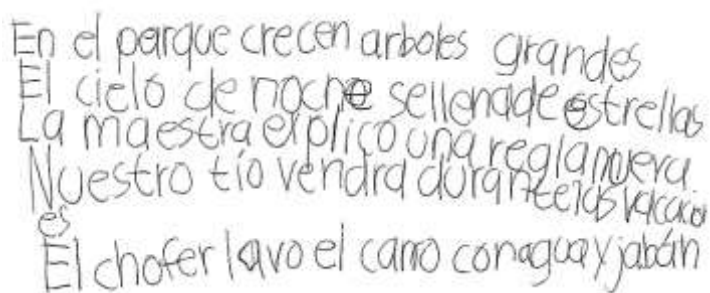 En el parque crecen arboles grandes
El cielo de noche sellenade estrellas
La maestra explico una regla nueva
Nuestro tío vendra durante las vacacion
es
El chofer lavo el carro con agua y jabán